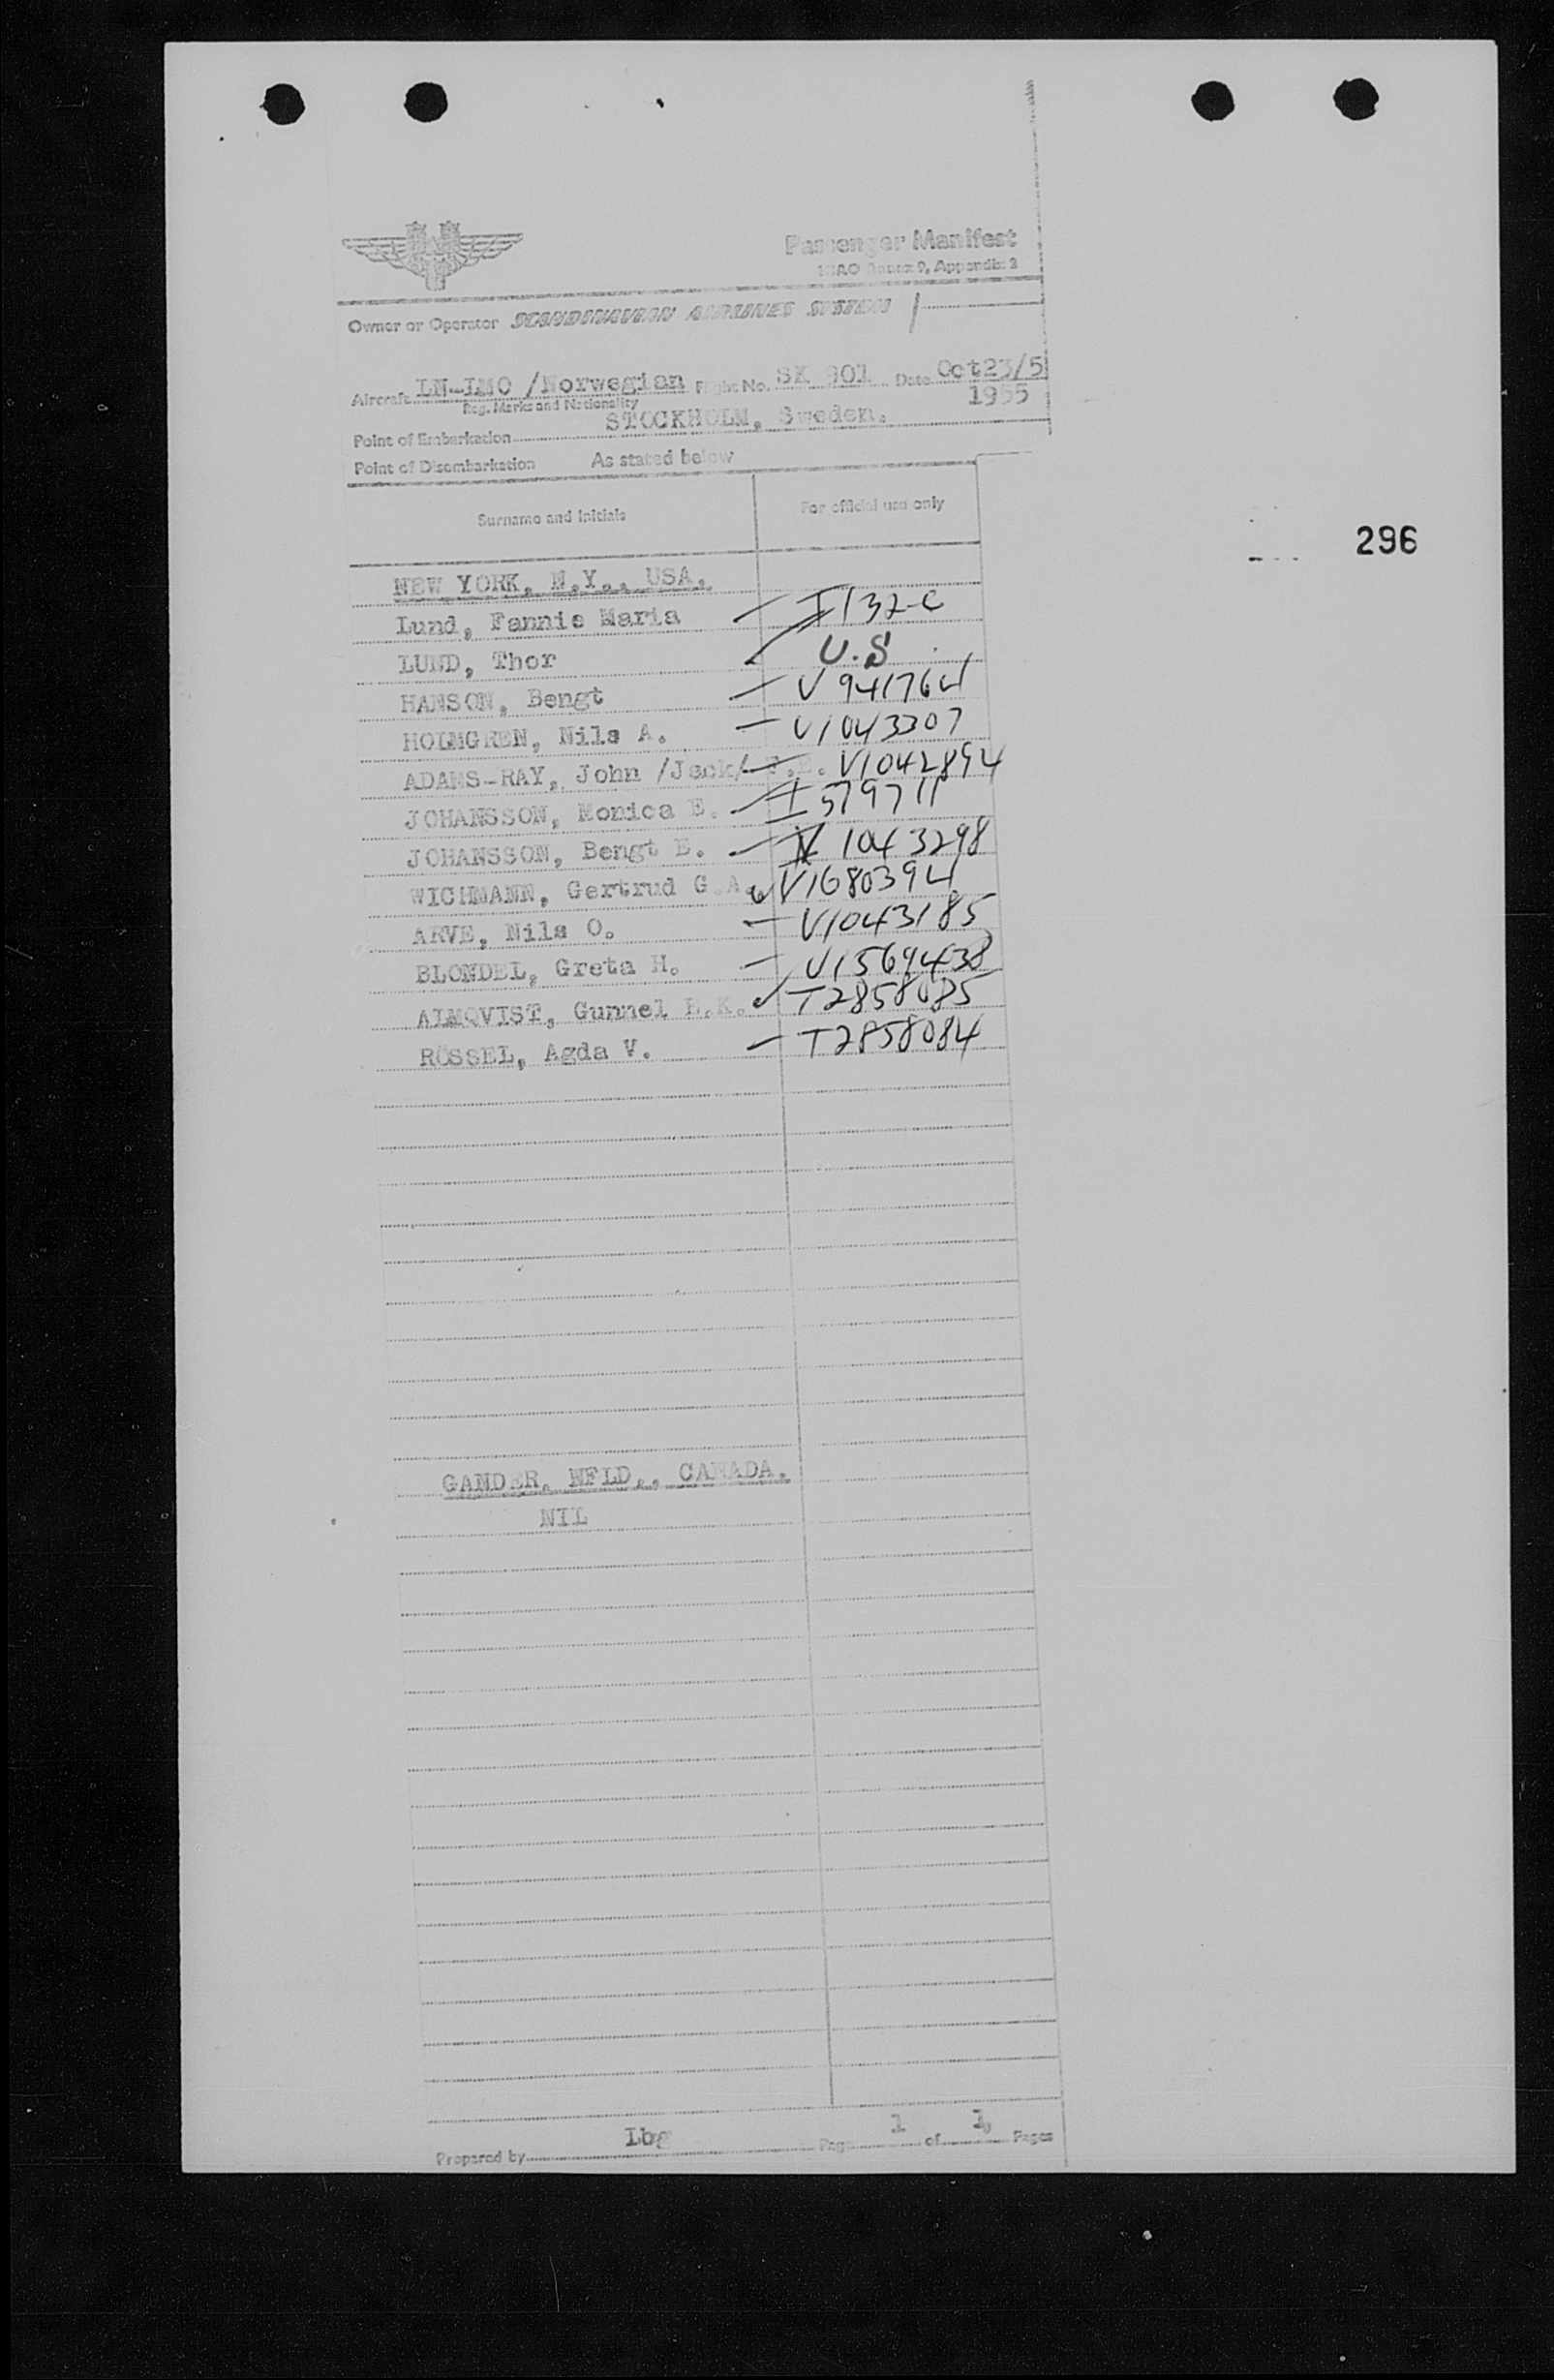 Passenger Manifest
ICAO Annex 9, Appendix 3
Owner or Operator SCANDINAVIAN AIRLINES SYSTEM
Aircraft LN-LMO /Norwegian Flight No. SK 901 Date Oct23/5
Reg. Marks and Nationality 1955
Point of Embarkation STOCKHOLM, Sweden.
Point of Disembarkation As stated below
Surname and initials For official use only
296
NEW YORK, N.Y., USA.
Lund, Fannie Maria — I132-C
LUND, Thor U.S
HANSON, Bengt — V941764
HOLMGREN, Nils A. — V1043307
ADAMS-RAY, John /Jack/ V1042894
JOHANSSON, Monica E. — I579711
JOHANSSON, Bengt E. — V 1043298
WICHMANN, Gertrud G.A. V1680394
ARVE, Nils O. — V1043185
BLONDEL, Greta H. — V1569438
ALMQVIST, Gunnel E.K. T2858085
RÖSSEL, Agda V. — T2858084
GANDER, NFLD., CANADA.
NIL
Prepared by Lbg Page 1 of 1 Pages